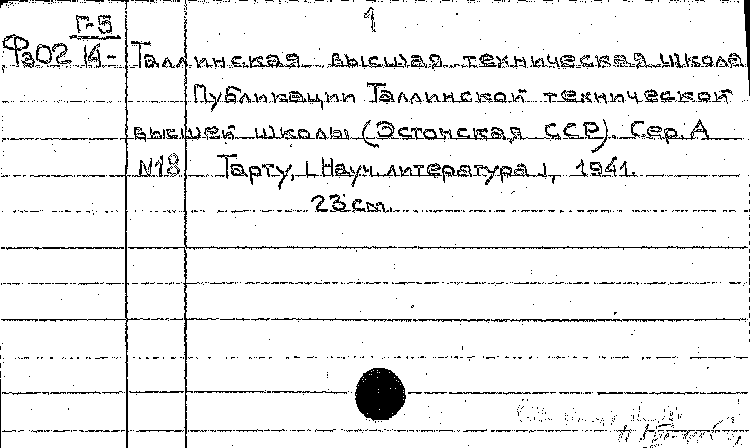 1
Г-5
Фа02 16- Таллинская высшая техническая школа
Публикации Таллинской технической
высшей школы (Эстонская ССР). Сер. А
N18 Тарту, [Науч. литература], 1941.
23 см.